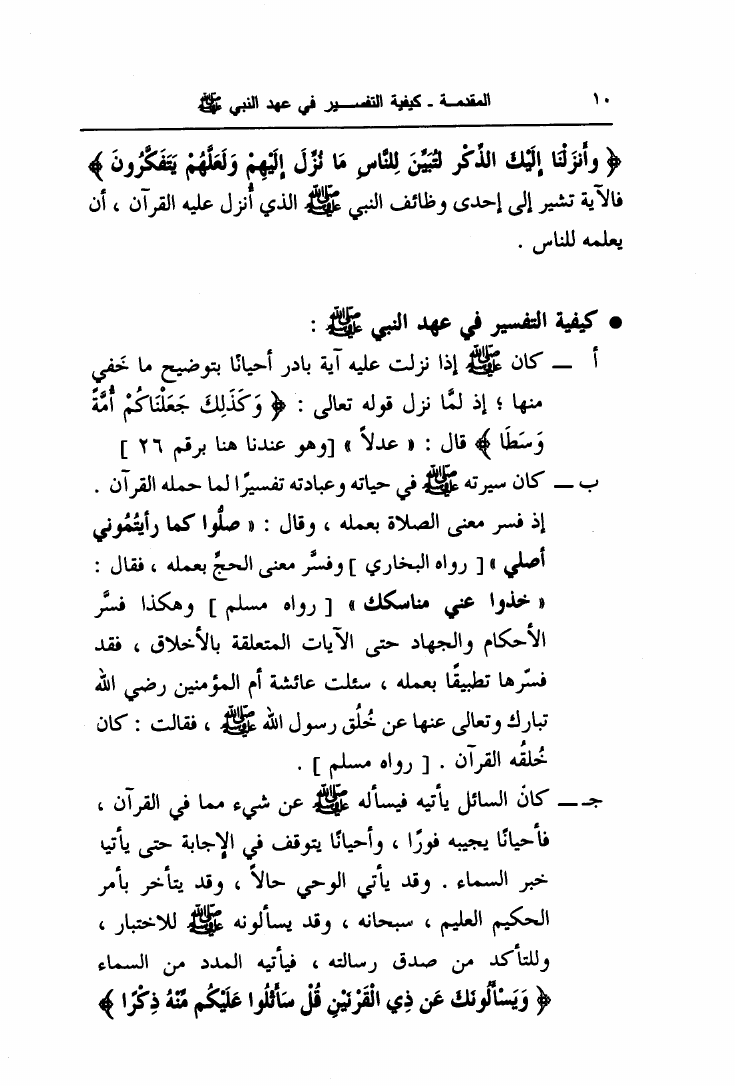 ١٠ المقدمة ـ كيفية التفسير في عهد النبي ﷺ
﴿ وأَنزَلْنَا إِلَيْكَ الذِّكْرَ لتُبَيِّنَ لِلنَّاسِ مَا نُزِّلَ إِلَيْهِمْ وَلَعَلَّهُمْ يَتَفَكَّرُونَ ﴾
فالآية تشير إلى إحدى وظائف النبي ﷺ الذي أُنزل عليه القرآن ، أن
يعلمه للناس .
● كيفية التفسير في عهد النبي ﷺ :
أ ــ كان ﷺ إذا نزلت عليه آية بادر أحيانًا بتوضيح ما خَفي
منها ؛ إذ لمَّا نزل قوله تعالى : ﴿ وَكَذَلِكَ جَعَلْنَاكُمْ أُمَّةً
وَسَطًا ﴾ قال : « عدلاً » [وهو عندنا هنا برقم ٢٦ ]
ب ــ كان سيرته ﷺ في حياته وعبادته تفسيرًا لما حمله القرآن .
إذ فسر معنى الصلاة بعمله ، وقال : « صلُّوا كما رأيتُمُوني
أصلي » [ رواه البخاري ] وفسَّر معنى الحجِّ بعمله ، فقال :
« خذوا عني مناسكك » [ رواه مسلم ] وهكذا فسَّر
الأحكام والجهاد حتى الآيات المتعلقة بالأخلاق ، فقد
فسّرها تطبيقًا بعمله ، سئلت عائشة أم المؤمنين رضي الله
تبارك وتعالى عنها عن خُلُق رسول الله ﷺ ، فقالت : كان
خُلقُه القرآن . [ رواه مسلم ] .
جـ ــ كانَ السائل يأتيه فيسأله ﷺ عن شيء مما في القرآن ،
فأحيانًا يجيبه فورًا ، وأحيانًا يتوقف في الإجابة حتى يأتيا
خبر السماء . وقد يأتي الوحي حالاً ، وقد يتأخر بأمر
الحكيم العليم ، سبحانه ، وقد يسألونه ﷺ للاختبار ،
وللتأكد من صدق رسالته ، فيأتيه المدد من السماء
﴿ وَيَسْأَلُونَكَ عَن ذِي الْقَرْنَيْنِ قُل سَأَتْلُوا عَلَيْكُم مِّنْهُ ذِكْرًا ﴾